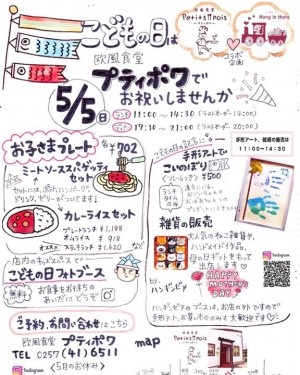 こどもの日は
欧風食堂
Petits Pois
Hang in there
コラボ企画
プティポワで
お祝いしませんか
5/5(日)
ランチ 11:00〜14:30 (ラストオーダー14:00)
ディナー 17:30〜21:00 (ラストオーダー20:00)
お子さまプレート
各¥702
ミートソーススパゲッティ
セット
カレーライスセット
プレートランチ ¥1,188
オムライス ¥918
ステーキランチ ¥1,620
店内のキッズスペースで
こどもの日フォトブース
無料
お食事をお待ちの
あいだにどうぞ
ご予約、お問い合わせはこちら
欧風食堂 プティポワ
TEL 0257(41)6511
Instagram
<5月のお休み>
こどもの日の記念に
手形アートで
こいのぼり
¥500
ランチ
タイム
のみ
手形アート、雑貨の販売は
11:00〜14:30
雑貨の販売
大人気のねこ雑貨や、
ハンドメイド作品、
母の日ギフトをもって
出店します♡
by
ハンギンゼア
HAPPY
MOTHER'S
DAY
Instagram
ハンギンゼアのブースは、お店の外ですので
手形アート、お買いもののみも大歓迎です♡
map
Petits Pois